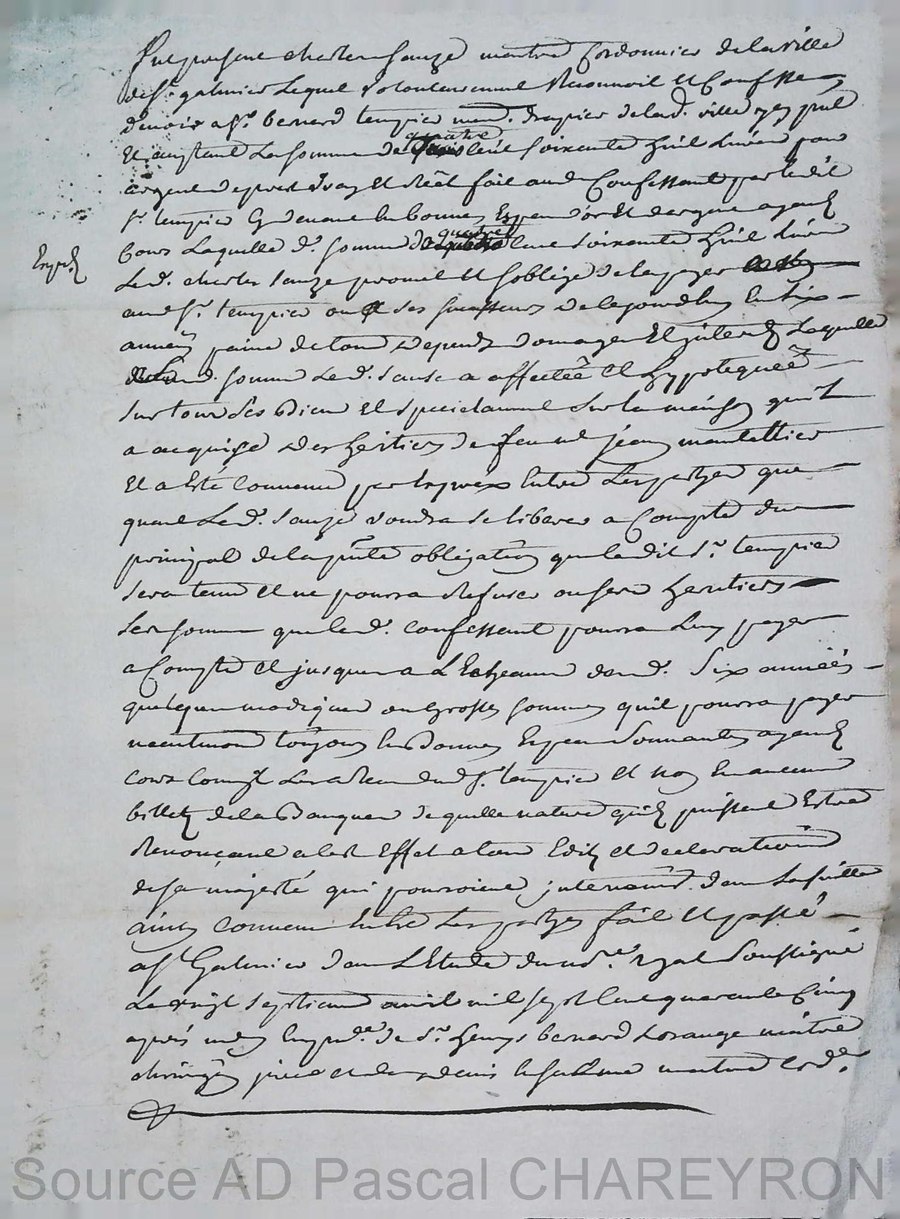 Fut present charles sauze maitre Cordonnier de la ville
de St. galmier Lequel volontairement Reconnoit et Confesse
devoir a Sr. bernard tempier mard. drapier de lad. ville icy pnt
Et acceptant La somme de quatre Cent soixante huit Livres pour
argent de prest vray et Réél fait aud. Confessant par ledit
Sr. tempier Cy devant En bonnes Especes d'or Et d'argent ayant
Cours Laquelle d. somme de quatre Cent soixante huit Livres
Le d. charles sauze promet et s'oblige de la payer
aud Sr. tempier ou a ses successeurs de ce jourdhuy En six
années paine de tous depends domages Et interets Laquelle
d. somme Le d. sauze a affectée et hypotequée
sur tous ses biens et specialement sur la maison qu'il
a acquise des heritiers de feu jean
Et a Esté Convenu par Exprex Entre Les partyes que
quand Le d. sauze voudra se liberer a Compte du
principal de la pnte obligation que le dit Sr. tempier
sera tenu et ne pourra Refuser ou ses heritiers
Les sommes que le d. confessant pourra Luy payer
a Compte et jusques a L'Echeance desd. six années
quelques modiques ou grosses sommes qu'il pourra payer
neantmoins toujours En bonnes Especes sonnantes ayant
cours dud Sr. tempier et non En aucuns
billets de la Banque de quelle nature qu'ils puissent Estre
Renonçant a cet Effet a tous Edits et declarations
de sa majesté qui pourroient intervenir dans La suitte
ainsy convenu Entre Les partyes fait et passé
a St Galmier dans L'Etude du nore. royal soussigné
Le vingt septieme avril mil sept Cent quarante Cinq
après midy En pnce. de Sr. henry bernard Lorange maitre
chirurgien juré et de denis maitre cordr.